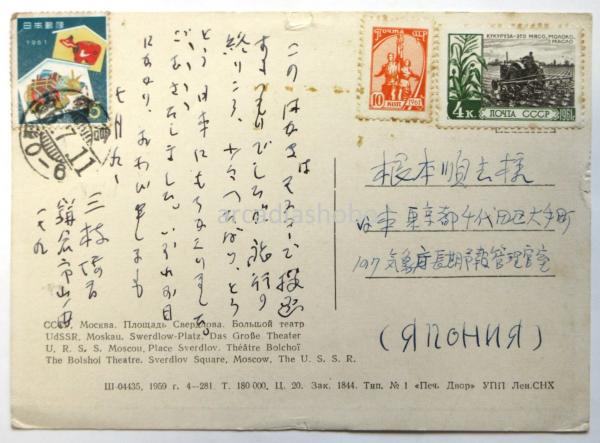 日本郵便
1961
5
ПОЧТА СССР
10 КОП
1961
КУКУРУЗА-ЭТО МЯСО, МОЛОКО, МАСЛО
4 К.
ПОЧТА СССР
1961
7.11
0-6
このはがきは モスクワで投函
するつもりでしたが 旅行の
終りころ、少々へばり、とう
とう日本にもちかえりまして
七月九日
三枝
鎌倉市山
一九
根本順吉様
日本 東京都千代田区大手町
気象庁長期予報管理官室
(ЯПОНИЯ)
arcadiashobo
СССР, Москва. Площадь Свердлова. Большой театр
UdSSR, Moskau. Swerdlow-Platz. Das Große Theater
U. R. S. S. Moscou, Place Sverdlov. Théâtre Bolchoï
The Bolshoi Theatre. Sverdlov Square, Moscow, The U. S. S. R.
Ш-04435, 1959 г. 4—281. Т. 180 000. Ц. 20. Зак. 1844. Тип. № 1 «Печ. Двор» УПП Лен.СНХ